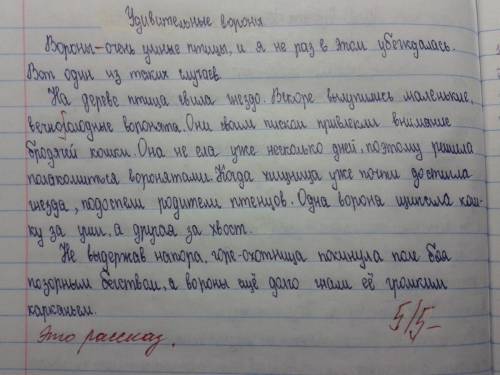 Удивительные вороны
Вороны – очень умные птицы, и я не раз в этом убеждалась.
Вот один из таких случаев.
На дереве птица свила гнездо. Вскоре вылупились маленькие,
вечноголодные воронята. Они своим писком привлекли внимание
бродячей кошки. Она не ела уже несколько дней, поэтому решила
полакомиться воронятами. Когда хищница уже почти достигла
гнезда, подоспели родители птенцов. Одна ворона щипала кош-
ку за уши, а другая за хвост.
Не выдержав напора, горе-охотница покинула поле боя
позорным бегством, а вороны ещё долго гнали её громким
карканьем.
Это рассказ. 5/5-